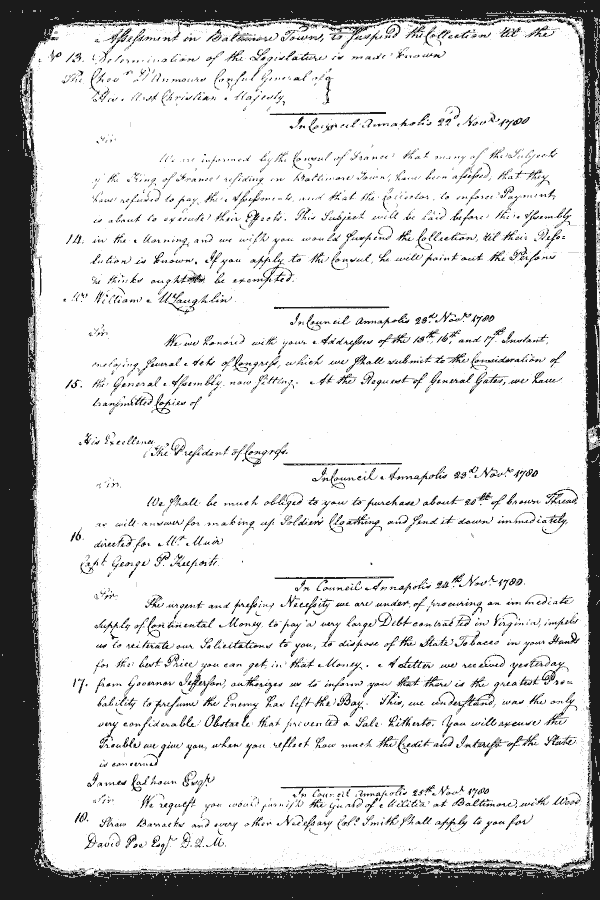 Assessment in Baltimore Town, to suspend the Collection til the
No 13. Determination of the Legislature is made known
The Chevr D'Anmours Consul General of
His Most Christian Majesty
In Council Annapolis 22d Novr 1780
Sir
We are informed by the Consul of France that many of the Subjects
of the King of France residing in Baltimore Town, have been assessed, that they
have refused to pay the Assessments, and that the Collector, to enforce Payment,
is about to execute their Effects. This Subject will be laid before the Assembly
14. in the Morning, and we wish you would suspend the Collection, til their Reso-
lution is known. If you apply to the Consul, he will point out the Persons
he thinks ought to be exempted.
Mr William McLaughlin
In Council Annapolis 23d Novr 1780
Sir.
We are honored with your Addresses of the 13th, 16th and 17th Instant,
enclosing several Acts of Congress, which we shall submit to the Consideration of
15. the General Assembly now sitting. At the Request of General Gates, we have
transmitted Copies of
His Excellency
The President of Congress.
In Council Annapolis 23d Novr 1780
Sir.
We shall be much obliged to you to purchase about 20 lb of brown Thread,
as will answer for making up Soldiers Cloathing and send it down immediately
16. directed for Mr Muir
Capt George P. Keeports.
In Council Annapolis 24th Novr 1780.
Sir
The urgent and pressing Necessity we are under, of procuring an immediate
supply of Continental Money, to pay a very large Debt contracted in Virginia, impels
us to reiterate our Solicitations to you, to dispose of the State Tobacco in your Hands
for the best Price you can get, in that Money. A Letter we received yesterday,
17. from Governor Jefferson, authorizes us to inform you that there is the greatest Pro-
bability to presume the Enemy has left the Bay. This, we understand, was the only
very considerable Obstacle that prevented a Sale hitherto. You will excuse the
Trouble we give you, when you reflect how much the Credit and Interest of the State
is concerned
James Calhoun Esqr
In Council Annapolis 25th Novr 1780
Sir
We request you would furnish the Guard of Militia at Baltimore, with Wood
18. Straw Barracks and every other Necessary Colo Smith shall apply to you for
David Poe Esqr D. Q. M.